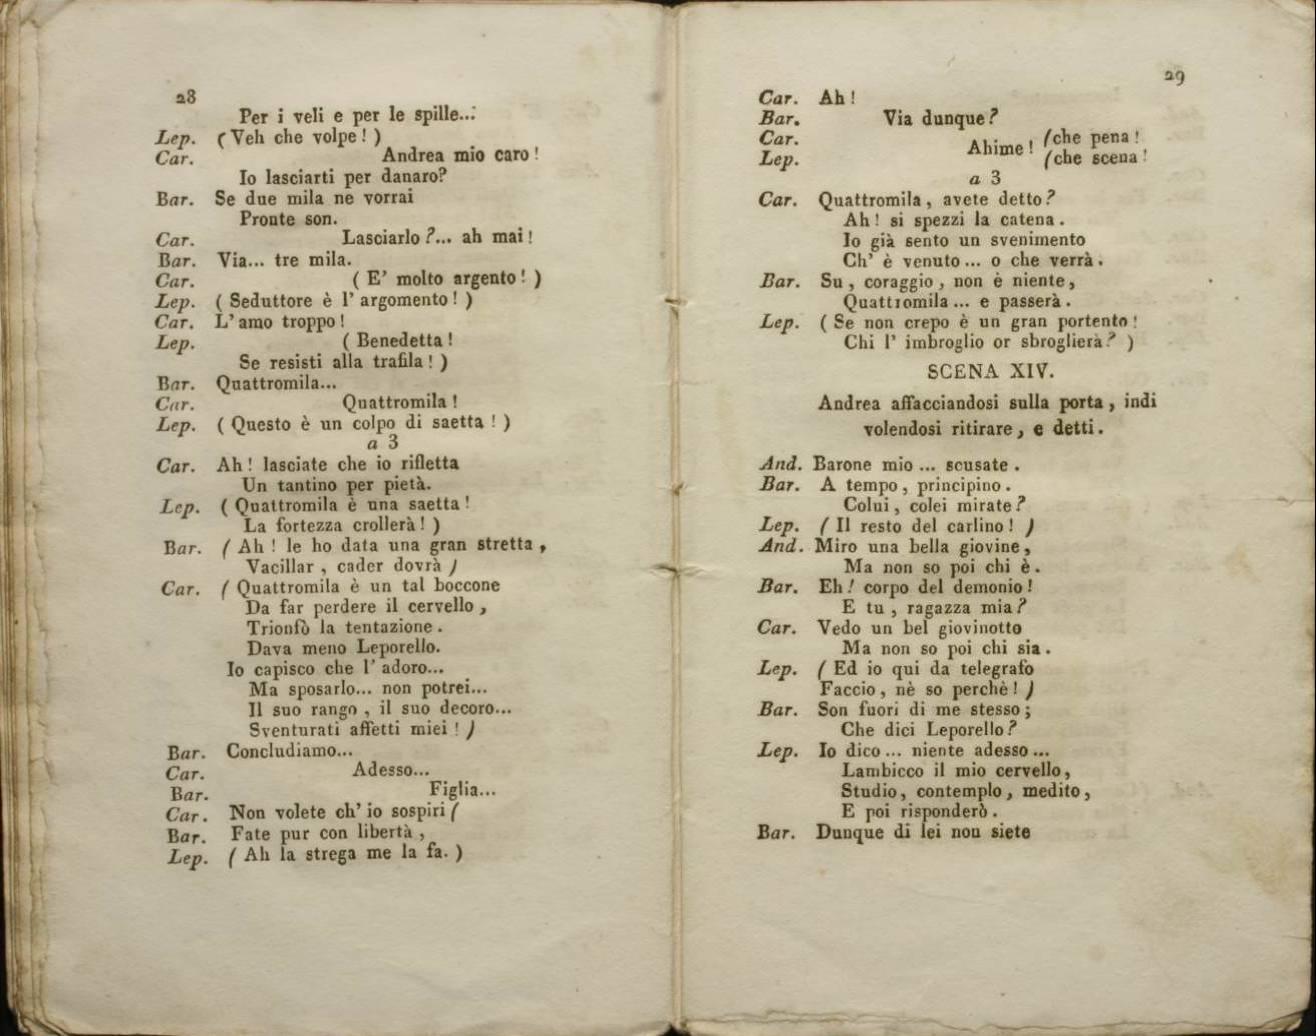 28
Per i veli e per le spille...
Lep. ( Veh che volpe ! )
Car. Andrea mio caro !
Io lasciarti per danaro?
Bar. Se due mila ne vorrai
Pronte son.
Car. Lasciarlo ?... ah mai !
Bar. Via... tre mila.
Car. ( E' molto argento ! )
Lep. ( Seduttore è l' argomento ! )
Car. L' amo troppo !
Lep. ( Benedetta !
Se resisti alla trafila ! )
Bar. Quattromila...
Car. Quattromila !
Lep. ( Questo è un colpo di saetta ! )
a 3
Car. Ah ! lasciate che io rifletta
Un tantino per pietà.
Lep. ( Quattromila è una saetta !
La fortezza crollerà ! )
Bar. ( Ah ! le ho data una gran stretta ,
Vacillar , cader dovrà )
Car. ( Quattromila è un tal boccone
Da far perdere il cervello ,
Trionfò la tentazione .
Dava meno Leporello.
Io capisco che l' adoro...
Ma sposarlo... non potrei...
Il suo rango , il suo decoro...
Sventurati affetti miei ! )
Bar. Concludiamo...
Car. Adesso...
Bar. Figlia...
Car. Non volete ch' io sospiri (
Bar. Fate pur con libertà ,
Lep. ( Ah la strega me la fa. )
29
Car. Ah !
Bar. Via dunque ?
Car. Ahime ! (che pena !
Lep. (che scena !
a 3
Car. Quattromila , avete detto ?
Ah ! si spezzi la catena .
Io già sento un svenimento
Ch' è venuto ... o che verrà .
Bar. Su , coraggio , non è niente ,
Quattromila ... e passerà .
Lep. ( Se non crepo è un gran portento !
Chi l' imbroglio or sbroglierà ? )
SCENA XIV.
Andrea affacciandosi sulla porta , indi
volendosi ritirare , e detti .
And. Barone mio ... scusate .
Bar. A tempo , principino .
Colui , colei mirate ?
Lep. ( Il resto del carlino ! )
And. Miro una bella giovine ,
Ma non so poi chi è .
Bar. Eh ! corpo del demonio !
E tu , ragazza mia ?
Car. Vedo un bel giovinotto
Ma non so poi chi sia .
Lep. ( Ed io qui da telegrafo
Faccio , nè so perchè ! )
Bar. Son fuori di me stesso ;
Che dici Leporello ?
Lep. Io dico ... niente adesso ...
Lambicco il mio cervello ,
Studio , contemplo , medito ,
E poi risponderò .
Bar. Dunque di lei non siete